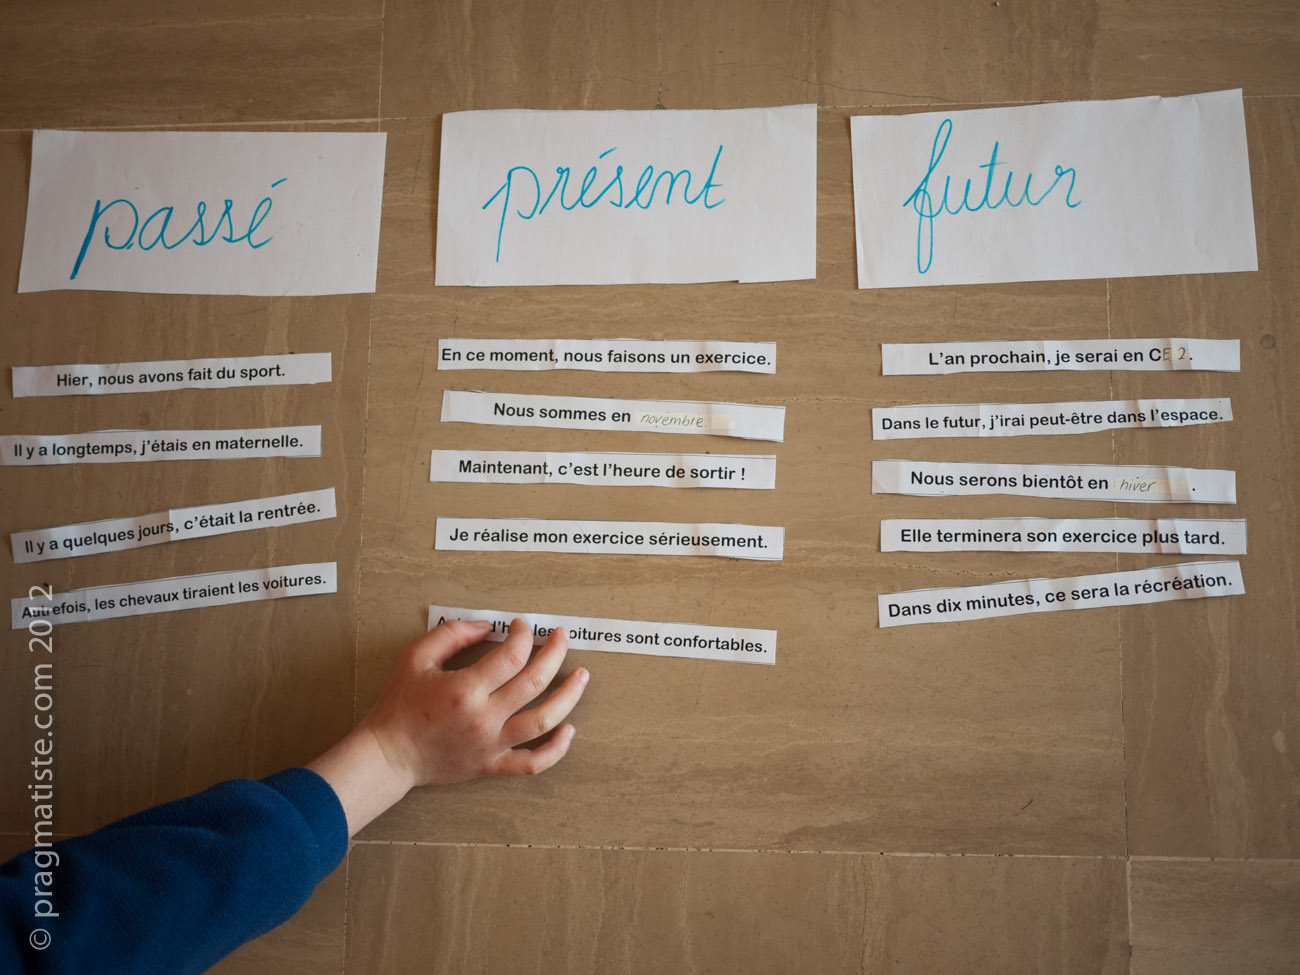 passé
Hier, nous avons fait du sport.
Il y a longtemps, j'étais en maternelle.
Il y a quelques jours, c'était la rentrée.
Autrefois, les chevaux tiraient les voitures.
présent
En ce moment, nous faisons un exercice.
Nous sommes en novembre.
Maintenant, c'est l'heure de sortir !
Je réalise mon exercice sérieusement.
les voitures sont confortables.
futur
L'an prochain, je serai en CE2.
Dans le futur, j'irai peut-être dans l'espace.
Nous serons bientôt en hiver .
Elle terminera son exercice plus tard.
Dans dix minutes, ce sera la récréation.
© pragmatiste.com 2012